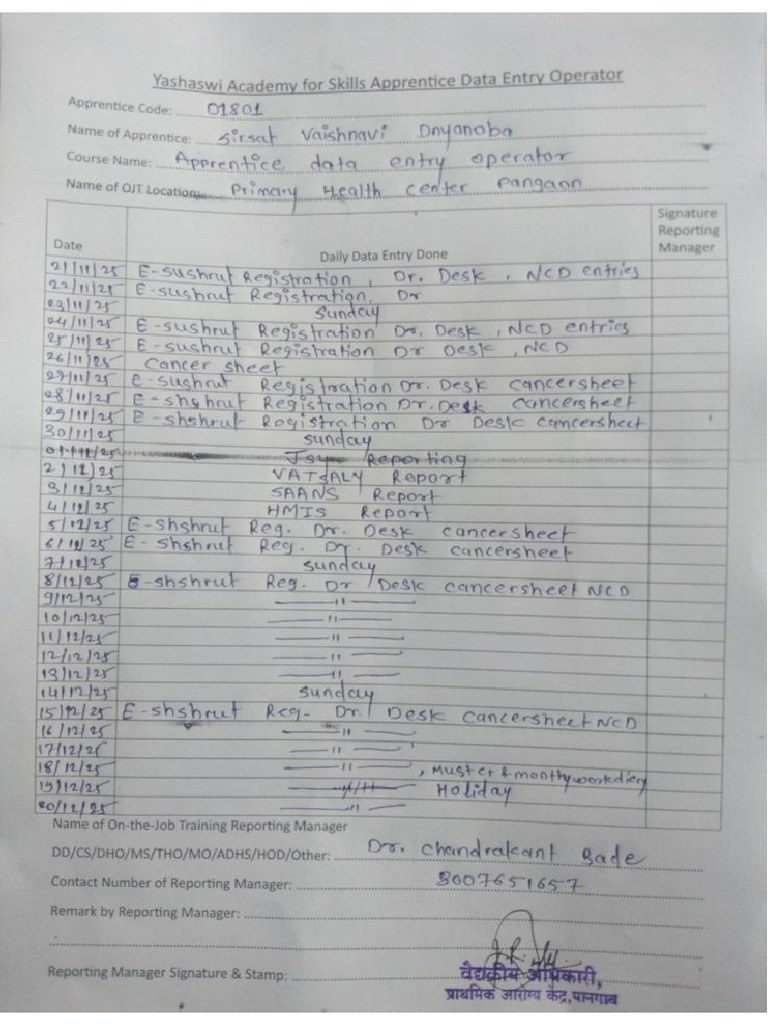 Yashaswi Academy for Skills Apprentice Data Entry Operator
Apprentice Code: 01801
Name of Apprentice: Sirsat Vaishnavi Dnyanoba
Course Name: Apprentice data entry operator
Name of OJT Location: Primary Health center Pangaon
Date Daily Data Entry Done Signature Reporting Manager
21/11/25 E-sushrut Registration, Dr. Desk, NCD entries
22/11/25 E-sushrut Registration, Dr
23/11/25 Sunday
24/11/25 E-sushrut Registration Dr. Desk, NCD entries
25/11/25 E-sushrut Registration Dr Desk, NCD
26/11/25 Cancer sheet
27/11/25 E-sushrut Registration Dr. Desk cancersheet
28/11/25 E-shshrut Registration Dr. Desk cancersheet
29/11/25 E-shshrut Registration Dr Desk cancersheet
30/11/25 Sunday
01/12/25 Reporting
2/12/25 VATSALY Report
3/12/25 SAANS Report
4/12/25 HMIS Report
5/12/25 E-shshrut Reg. Dr. Desk cancersheet
6/12/25 E-shshrut Reg. Dr. Desk cancersheet
7/12/25 Sunday
8/12/25 E-shshrut Reg. Dr Desk cancersheet NCD
9/12/25 —— 11 ——
10/12/25 —— 11 ——
11/12/25 —— 11 ——
12/12/25 —— 11 ——
13/12/25 —— 11 ——
14/12/25 Sunday
15/12/25 E-shshrut Reg. Dr Desk cancersheet NCD
16/12/25 —— 11 ——
17/12/25 —— 11 ——
18/12/25 —— 11 ——, Muster & monthy workdiery
19/12/25 Holiday
20/12/25 —— 11 ——
Name of On-the-Job Training Reporting Manager
DD/CS/DHO/MS/THO/MO/ADHS/HOD/Other: Dr. Chandrakant Bade
Contact Number of Reporting Manager: 8007651657
Remark by Reporting Manager:
Reporting Manager Signature & Stamp:
वैद्यकीय अधिकारी,
प्राथमिक आरोग्य केंद्र, पानगाव